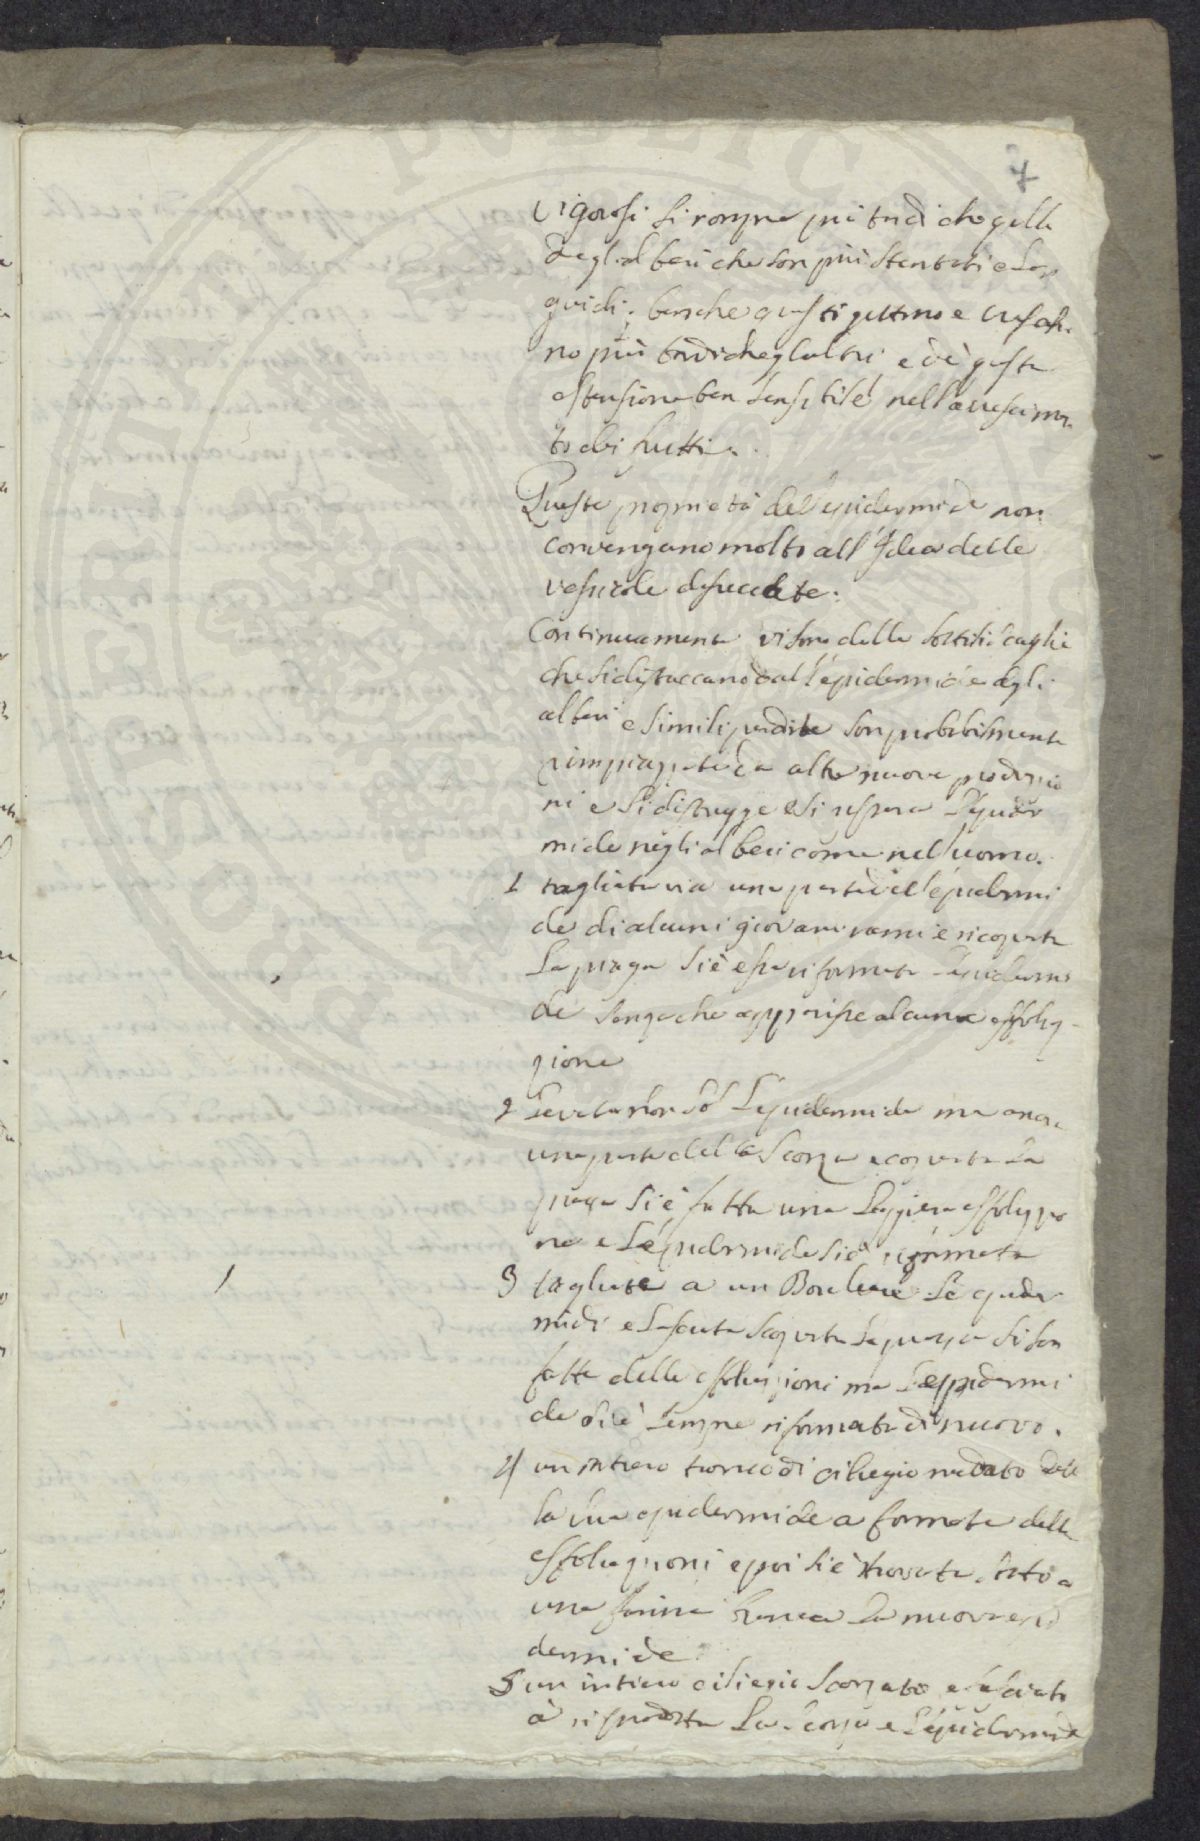 7
vigorosi si rompe più tardi che quella
degl'alberi che son più stentati e lan
guidi; benche questi gettino e cresch.
no più tardi che gl'altri, e di questa
estensione ben sensibile nell'acrescimen
to dei frutti.
Queste proprietà del'epidermide non
convengano molto all'Idea delle
vesicole diseccate.
Continuamente vi sono delle sottili scaglie
che si distaccano dall'epidermide degli
alberi e simili perdite son probabilmente
rimpiazzate da altre nuove produzio
ni e si distrugge e si ripara l'epider
mide negli alberi come nel uomo.
1 tagliata via una parte dell'epidermi
de di alcuni giovani rami e ricoperta
la piaga si è riformata l'epidermi
de senza che apparisse alcuna esfoglia
zione
2 levata non sol l'epidermide ma anca
una parte della scorza e coperta la
piaga si è fatta una leggiera esfoliazio
ne e l'epidermide si è riformata
3 tagliata a un l'epider
midi e lasciata scoperta la piaga si son
fatte delle esfoliazioni ma l'eppidermi
de si è sempre riformata di nuovo.
4 un intiero tronco di ciliegio nudato del
la sua epidermide a formate delle
esfoliazioni e poi si è trovata sotto a
una farina bianca la nuova epi
dermide
5 un intiero ciliegio scorzato e lasciato
à riprodotta la scorza e l'epidermide
PUBLIC